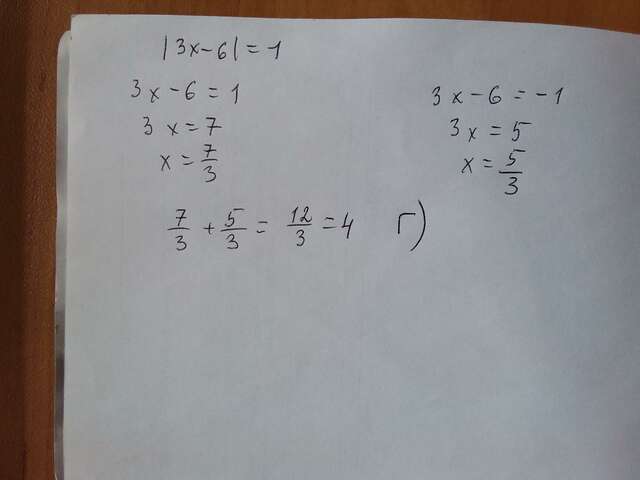 |3x-6| = 1
3x-6 = 1
3x = 7
x = 7/3
3x-6 = -1
3x = 5
x = 5/3
7/3 + 5/3 = 12/3 = 4 г)